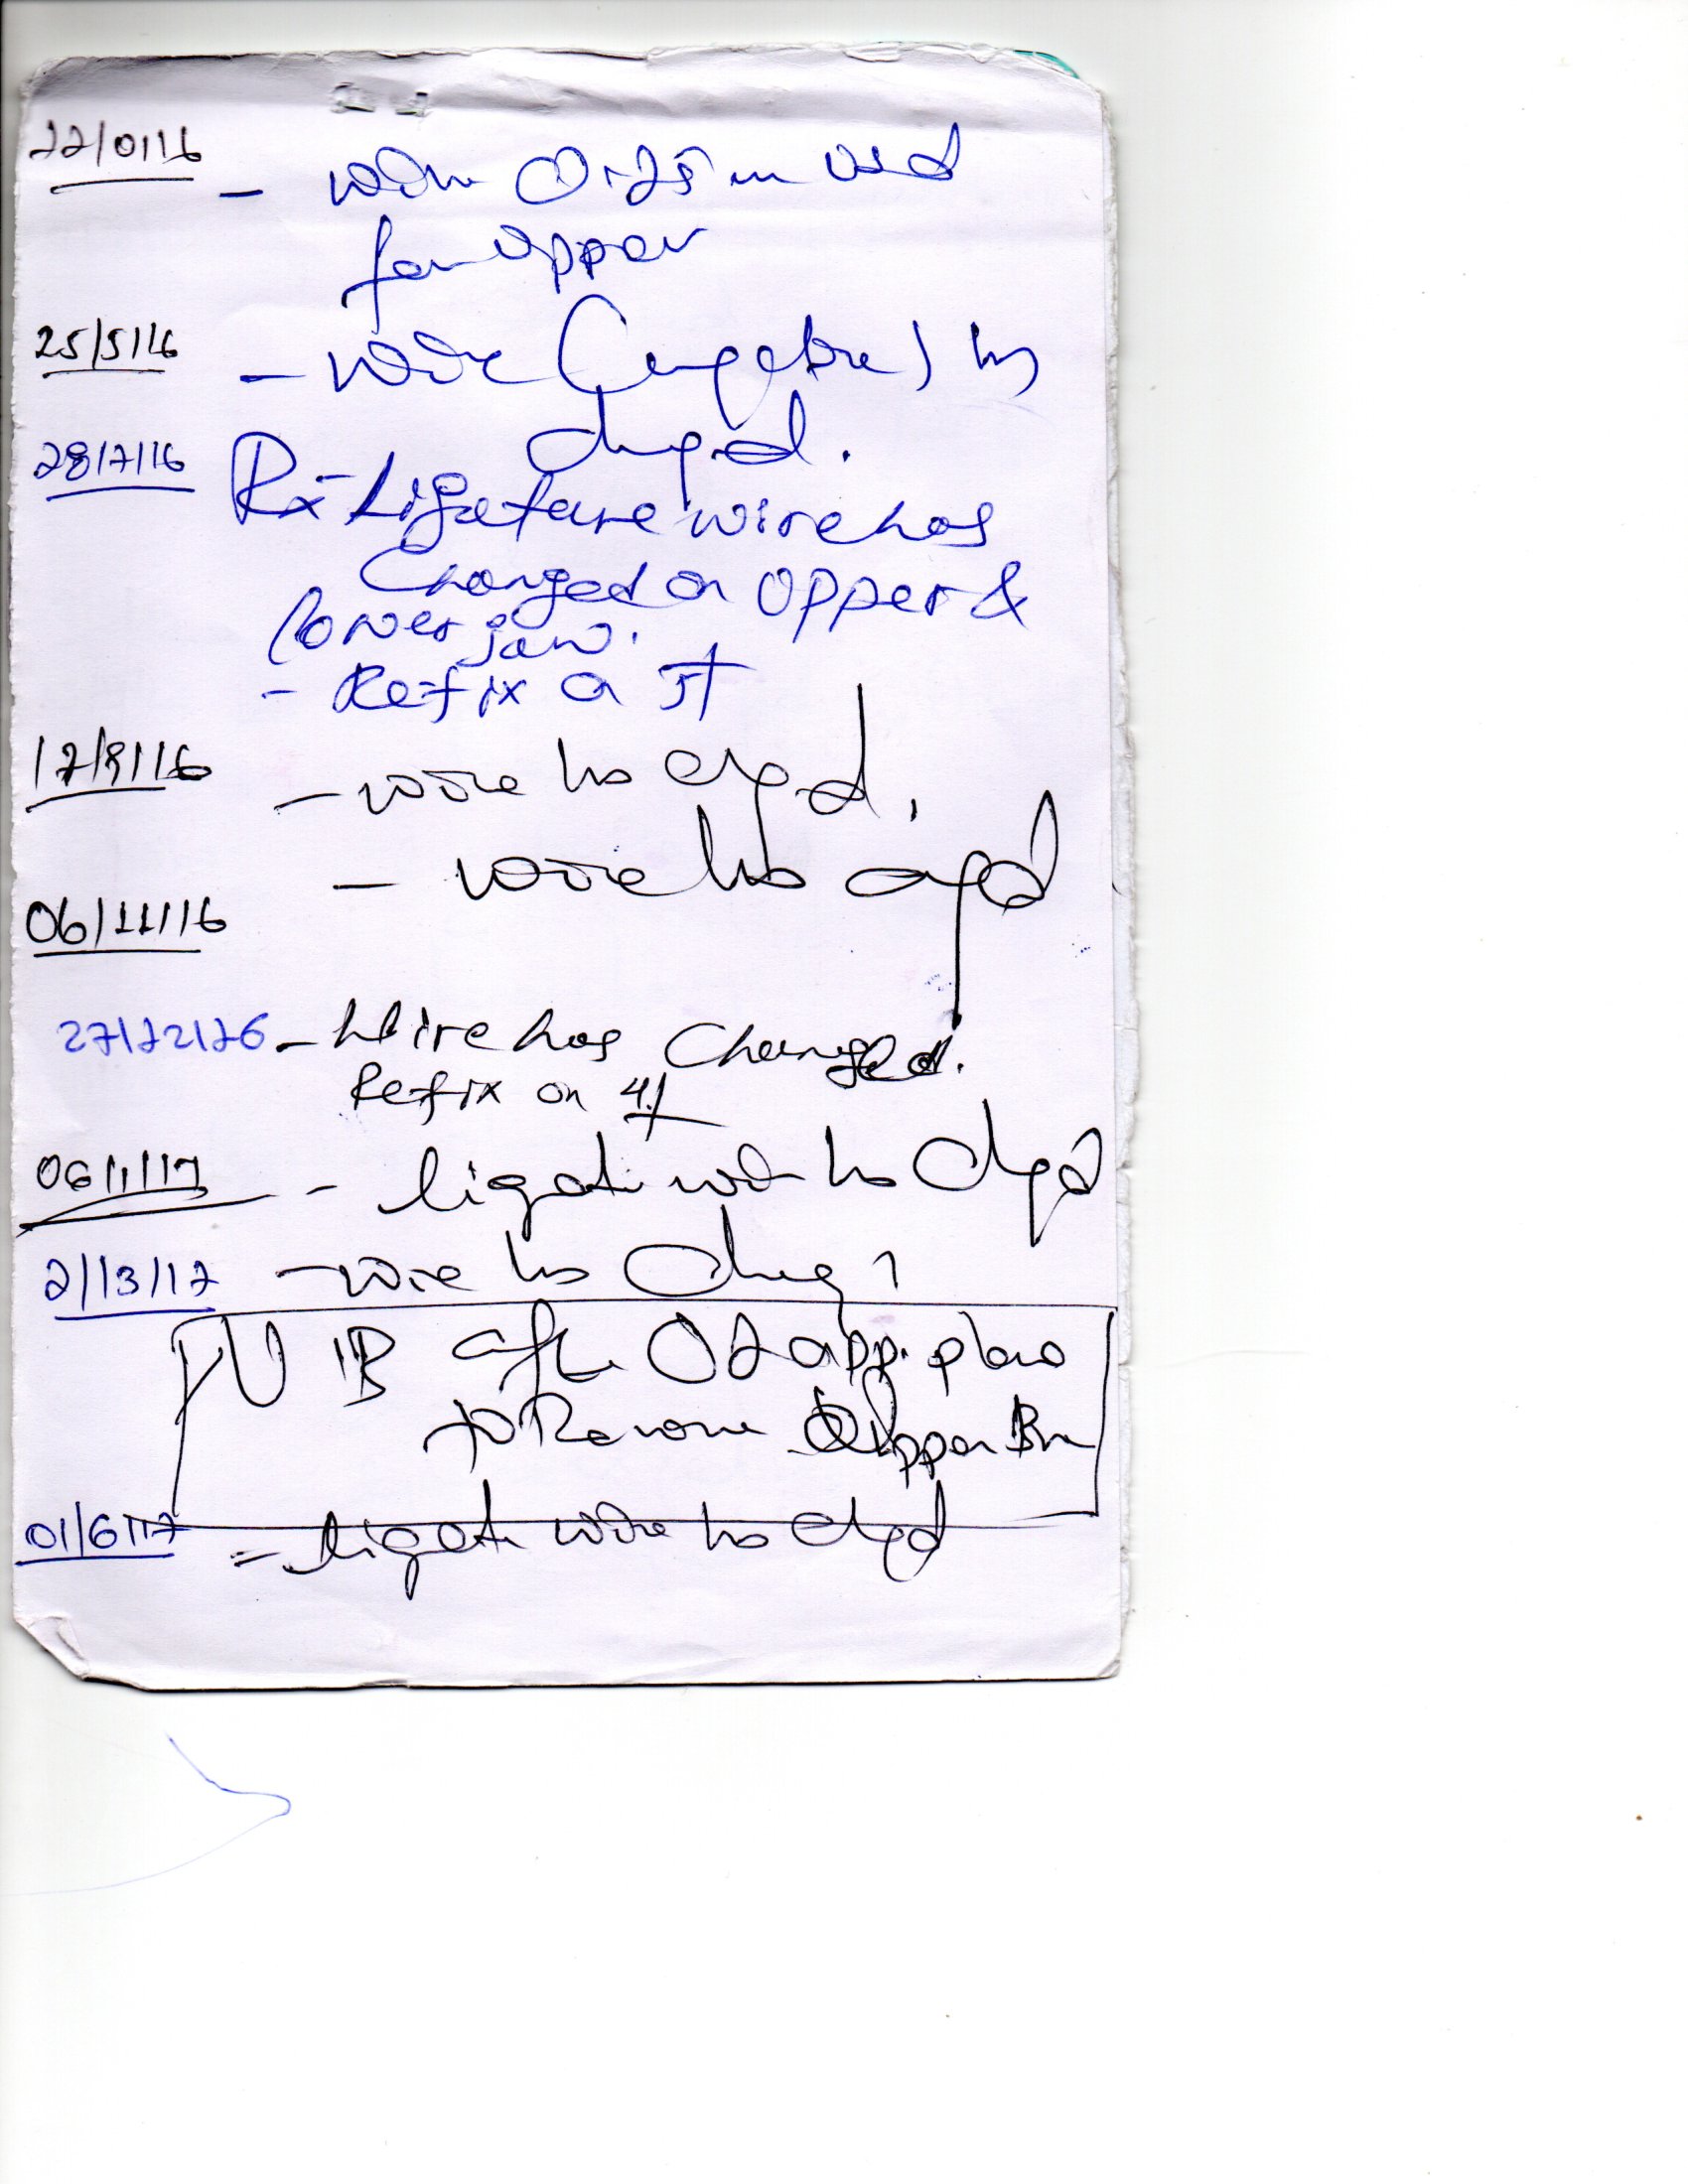 22/01/16
- wire 0.25 in used
for upper
25/5/16
- wire ( ) has
changed.
28/7/16
Rx - Ligature wire has
Changed on Upper &
lower jaw.
- Refix on 5
17/9/16
- wire has chged.
- wire has chgd
06/11/16
27/12/16 - Wire has Changed.
Refix on 4
06/1/17 - ligati wire has chgd
2/13/17 - wire has
after 02 app. plan
to Remove Upper
01/6/17 - ligati wire has chgd